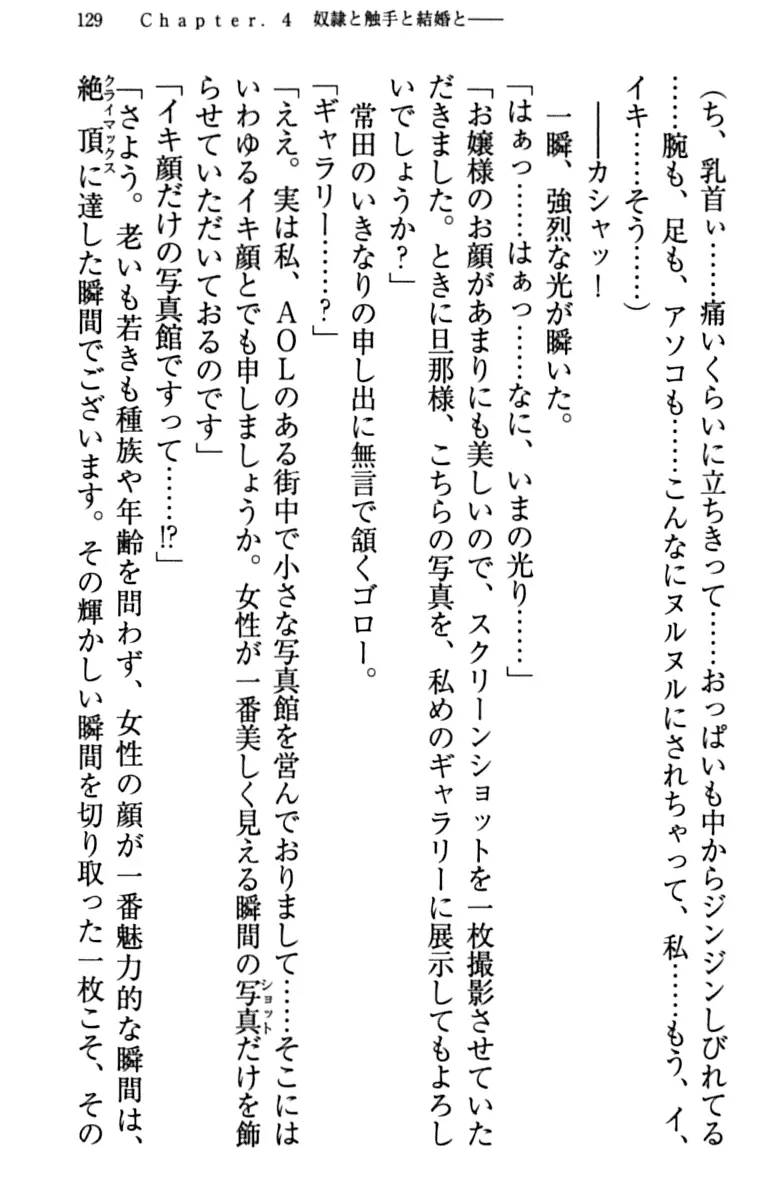 129　Chapter. 4　奴隷と触手と結婚と――
（ち、乳首ぃ……痛いくらいに立ちきって……おっぱいも中からジンジンしびれてる
……腕も、足も、アソコも……こんなにヌルヌルにされちゃって、私……もう、イ、
イキ……そう……）
――カシャッ！
一瞬、強烈な光が瞬いた。
「はぁっ……はぁっ……なに、いまの光り……」
「お嬢様のお顔があまりにも美しいので、スクリーンショットを一枚撮影させていた
だきました。ときに旦那様、こちらの写真を、私めのギャラリーに展示してもよろし
いでしょうか？」
常田のいきなりの申し出に無言で頷くゴロー。
「ギャラリー……？」
「ええ。実は私、AOLのある街中で小さな写真館を営んでおりまして……そこには
いわゆるイキ顔とでも申しましょうか。女性が一番美しく見える瞬間の写真ショットだけを飾
らせていただいておるのです」
「イキ顔だけの写真館ですって……!?」
「さよう。老いも若きも種族や年齢を問わず、女性の顔が一番魅力的な瞬間は、
絶頂クライマックスに達した瞬間でございます。その輝かしい瞬間を切り取った一枚こそ、その